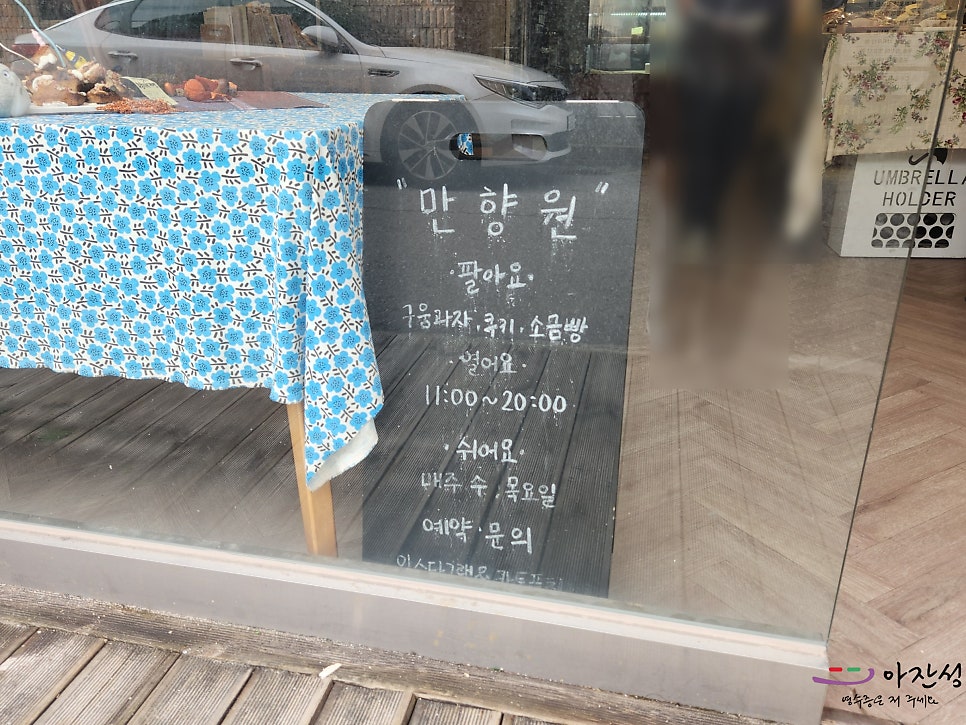 "만향원"
·팔아요·
구움과자·쿠키·소금빵
·열어요·
11:00~20:00
·쉬어요·
매주 수, 목요일
예약·문의
UMBRELLA
HOLDER
아잔성
영수증은 저 주세요